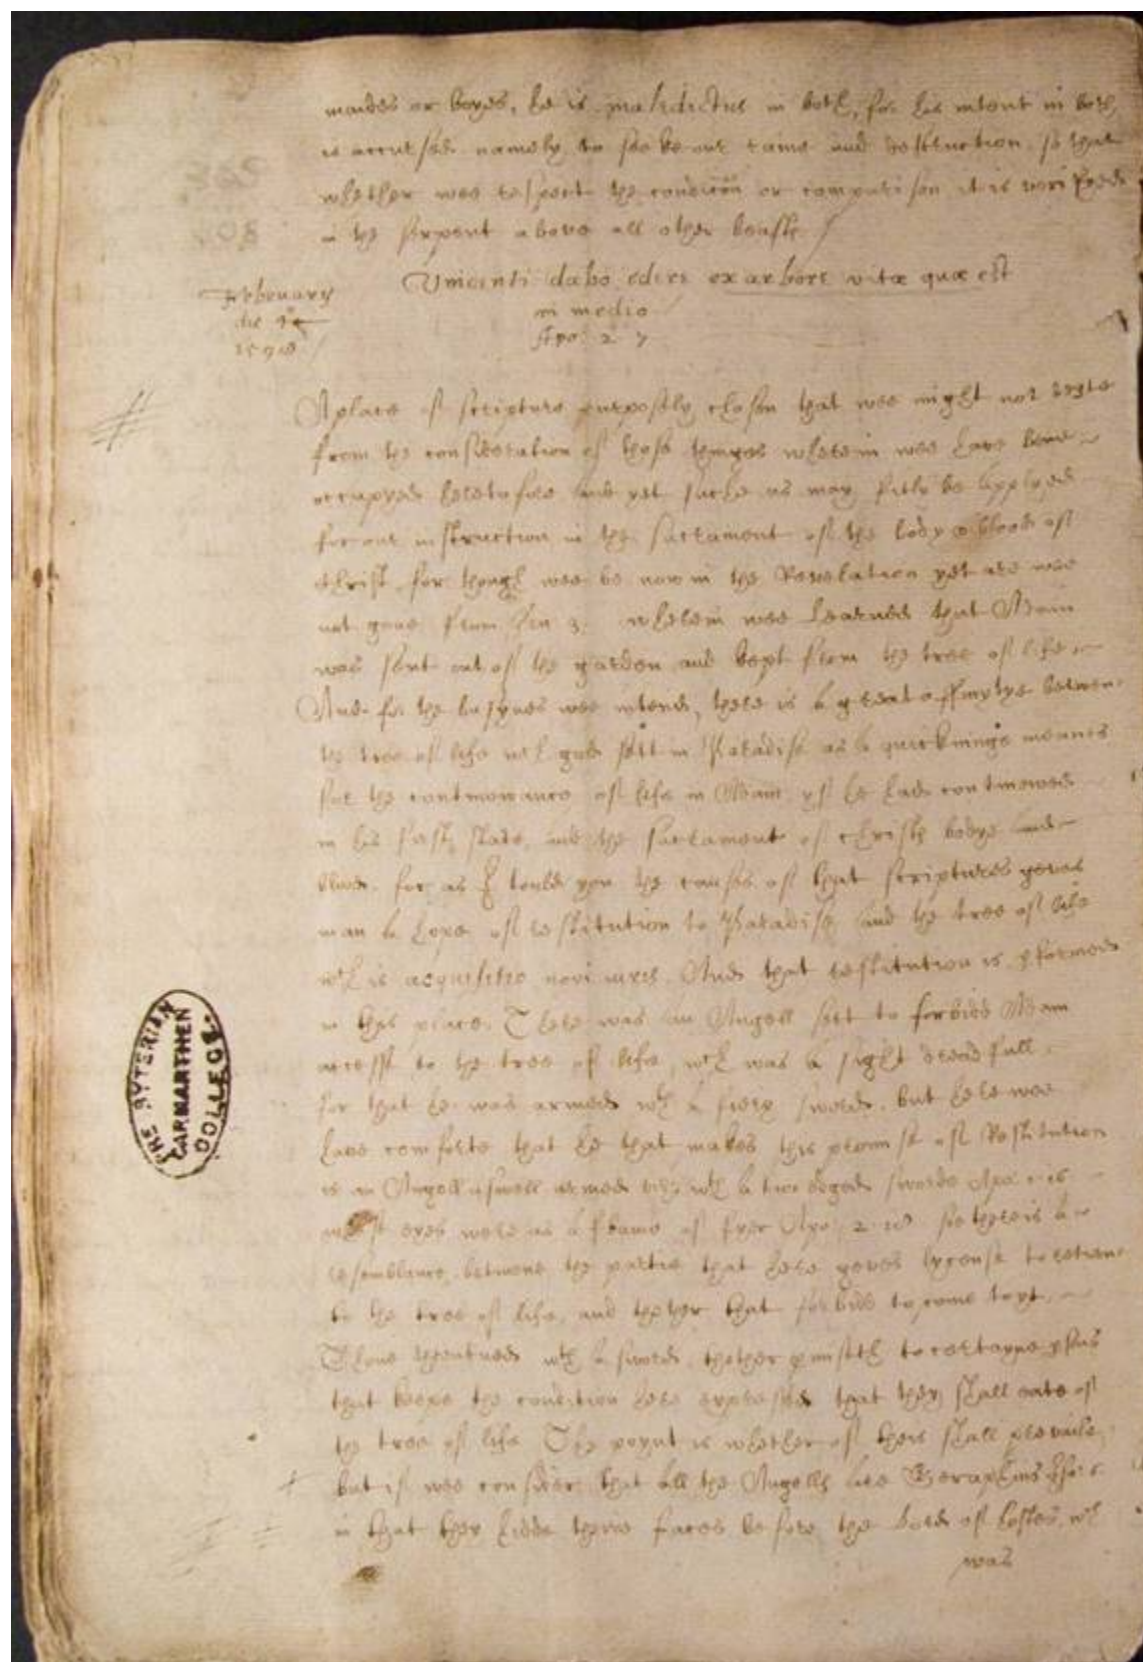 maides or boyes, he is maledictus in both, for his intent in both
is accursed namely to seeke our ruine and destruction. so that
whether wee respect the condicon or comparison it is verifyed
in the serpent above all other beasts /
February
die
Vincenti dabo edere ex arbore vitæ quæ est
in medio
Apo: 2. 7
A place of scripture purposely chosen that wee might not
from the consideration of those thinges wherein wee have bene
occupyed heretofore and yet suche as may fitly be applyed
for our instruction in the sacrament of the body & blood of
Christ for though wee be now in the Revelation yet are wee
not gone from Gen 3. wherein wee learned that Adam
was sent out of the garden and kept from the tree of life
And for the busynes wee intend, there is a great affinytye betwen
the tree of life wch god sett in Paradise as a quickninge meanes
for the continowance of life in Adam yf he had continowed
in his first state, and the sacrament of Christs bodye and
blood. for as I tould you the causes of that scriptures geves
man a hope of restitution to Paradise and the tree of life
wch is acquisitio novi iuris. And that restitution is pformed
in this place. There was an Angell sett to forbidd Adam
accesse to the tree of life, wch was a sight dreadfull
for that he was armed wth a fiery sword. but here wee
have comforte that he that makes this promise of Restitution
is an Angell aswell armed wth a two edged sworde Apo 1. 16
eyes were as a flame of fyer Apo: 2. 18 so there is a
resemblance betwene the partie that here geves lycense to returne
to the tree of life, and thother that forbids to come to yt,
Thone threatned wth a sword, thother pmiseth to certayne psons
that keepe the condition here expressed that they shall eate of
the tree of life The poynt is whether of theis shall prevaile
but if wee consider that all the Angells are Seraphins
in that they hidde theire faces before the Lord of hostes, wch
was
THE BYTERIAN
CARMARTHEN
COLLEGE.